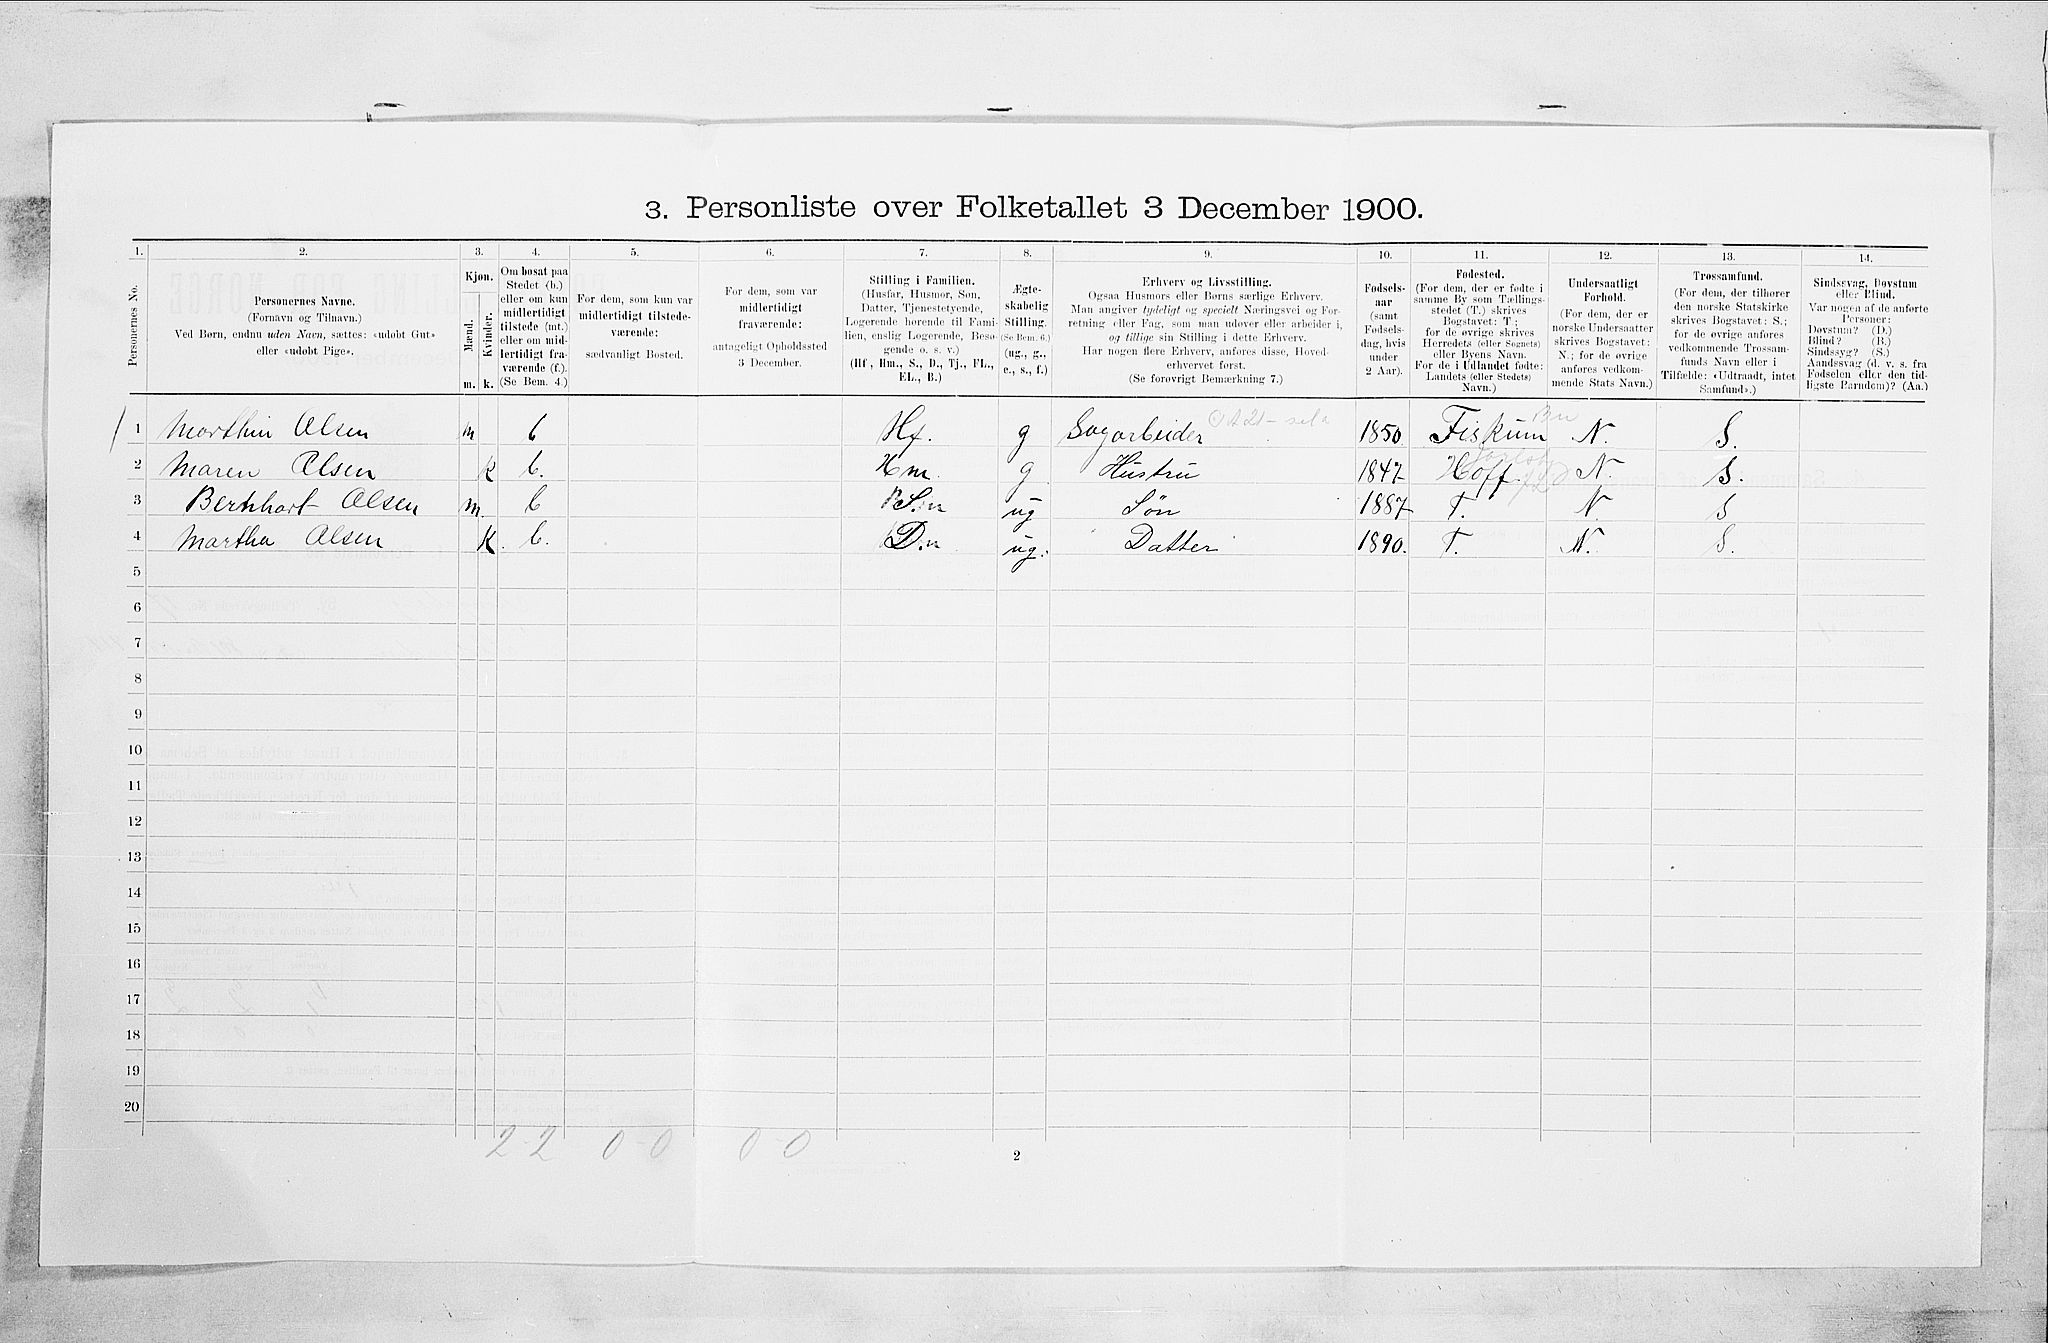 3. Personliste over Folketallet 3 December 1900.
1. 2. 3. 4. 5. 6. 7. 8. 9. 10. 11. 12. 13. 14.
Personernes No.
Personernes Navne.
(Fornavn og Tilnavn.)
Ved Børn, endnu uden Navn, sættes: «udøbt Gut»
eller «udøbt Pige».
Kjøn.
Mænd.
Kvinder.
m. k.
Om bosat paa
Stedet (b.)
eller om kun
midlertidigt
tilstede (mt.)
eller om mid-
lertidigt fra-
værende (f.).
(Se Bem. 4.)
For dem, som kun var
midlertidigt tilstede-
værende:
sædvanligt Bosted.
For dem, som var
midlertidigt
fraværende:
antageligt Opholdssted
3 December.
Stilling i Familien.
(Husfar, Husmor, Søn,
Datter, Tjenestetyende,
Logerende hørende til Fami-
lien, enslig Logerende, Besø-
gende o. s. v.)
(Hf, Hm., S., D., Tj., FL.,
EL., B.)
Ægte-
skabelig
Stilling.
(Se Bem. 6.)
(ug., g.,
e., s., f.)
Erhverv og Livsstilling.
Ogsaa Husmors eller Børns særlige Erhverv.
Man angiver tydeligt og specielt Næringsvei og For-
retning eller Fag, som man udøver eller arbeider i,
og tillige sin Stilling i dette Erhverv.
Har nogen flere Erhverv, anføres disse, Hoved-
erhvervet først.
(Se forøvrigt Bemærkning 7.)
Fødsels-
aar
(samt
Fødsels-
dag, hvis
under
2 Aar).
Fødested.
(For dem, der er fødte i
samme By som Tællings-
stedet (T.) skrives
Bogstavet: T;
for de øvrige skrives
Herredets (eller Sognets)
eller Byens Navn.
For de i Udlandet fødte:
Landets (eller Stedets)
Navn.)
Undersaatligt
Forhold.
(For dem, der er
norske Undersaatter
skrives Bogstavet:
N.; for de øvrige
anføres vedkom-
mende Stats Navn.)
Trossamfund.
(For dem, der tilhører
den norske Statskirke
skrives Bogstavet: S.;
for de øvrige anføres
vedkommende Trossam-
funds Navn eller i
Tilfælde: «Udtraadt, intet
Samfund».)
Sindssvag, Døvstum
eller Blind.
Var nogen af de anførte
Personer:
Døvstum? (D.)
Blind? (B.)
Sindssyg? (S.)
Aandssvag (d. v. s. fra
Fødselen eller den tid-
ligste Barndom)? (Aa.)
1 Marthin Olsen m b Hf. g Sagarbeider 1850. Fiskum N. S.
2 Maren Olsen k b. Hm. g Hustru 1847 Hoff. N. S.
3 Bernhart Olsen m. b S. ug Søn 1887 T. N. S
4 Martha Olsen k. b. D. ug. Datter 1890. T. N. S.
5
6
7
8
9
10
11
12
13
14
15
16
17
18
19
20
2 - 2 0 - 0 0 - 0
2